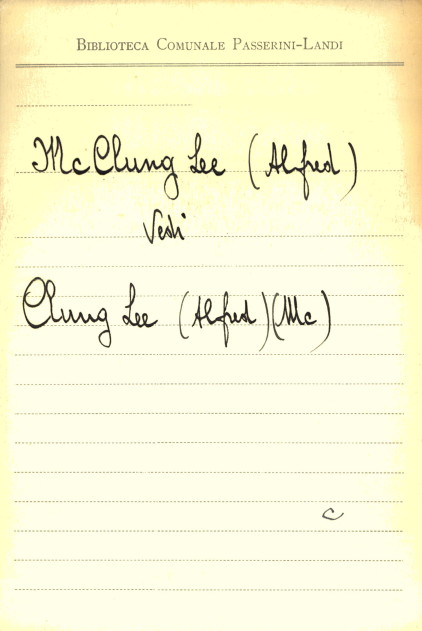 BIBLIOTECA COMUNALE PASSERINI-LANDI
McClung Lee (Alfred)
Vedi
Clung Lee (Alfred)(Mc)
c